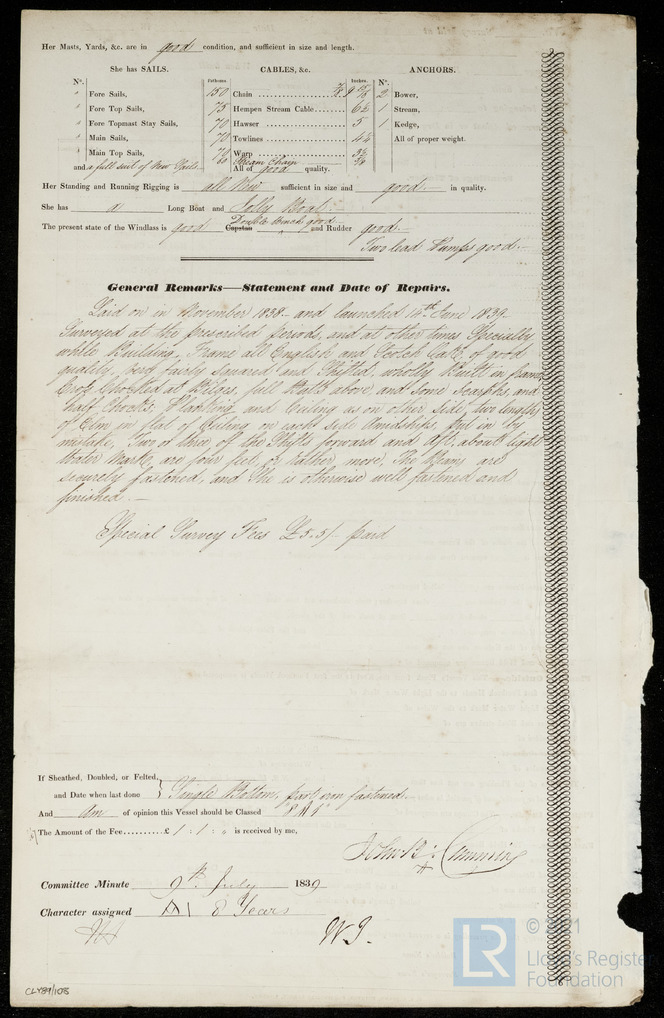 Her Masts, Yards, &c. are in good condition, and sufficient in size and length.
She has SAILS.
CABLES, &c.
ANCHORS.
N°.
Fathoms.
Inches.
N°.
" Fore Sails,
150 Chain
2 Bower,
" Fore Top Sails,
75 Hempen Stream Cable
6½
1 Stream,
" Fore Topmast Stay Sails,
70 Hawser
5
1 Kedge,
" Main Sails,
70 Towlines
4½
All of proper weight.
" Main Top Sails,
70 Warp
and a full suit of New Sails
Stream Chain
All of good quality.
Her Standing and Running Rigging is all New sufficient in size and good in quality.
She has a Long Boat and Jolly Boat.
The present state of the Windlass is good Capstan Double Winch good and Rudder good.
Two lead Pumps good.
General Remarks—Statement and Date of Repairs.
Laid on in November 1838 and launched 14th June 1839
Surveyed at the prescribed periods, and at other times Specially
while Building, Frame all English and Scotch Oak of good
quality, very fairly Squared and Shifted, wholly Built in frames
Cross Chocked at Bilges, full Butts above, and some Scarphs, and
half Chocks, Planking and Ceiling as on other side, two lengths
of Elm in flat of Ceiling on each side Amidships, put in by
mistake, Two or three of the Shifts forward and Aft, about light
Water Mark are four feet, or rather more, The Beams are
securely fastened, and She is otherwise well fastened and
finished.
Special Survey Fees £5.5/- paid
If Sheathed, Doubled, or Felted,
and Date when last done } Single Bottom, part iron fastened.
And Am of opinion this Vessel should be Classed
The Amount of the Fee £1 : 1 : 0 is received by me,
Cumming
Committee Minute 9th July 1839
Character assigned A1 8 Years
W J.
CLY89/108
LR
© 2021
Lloyd's Register
Foundation